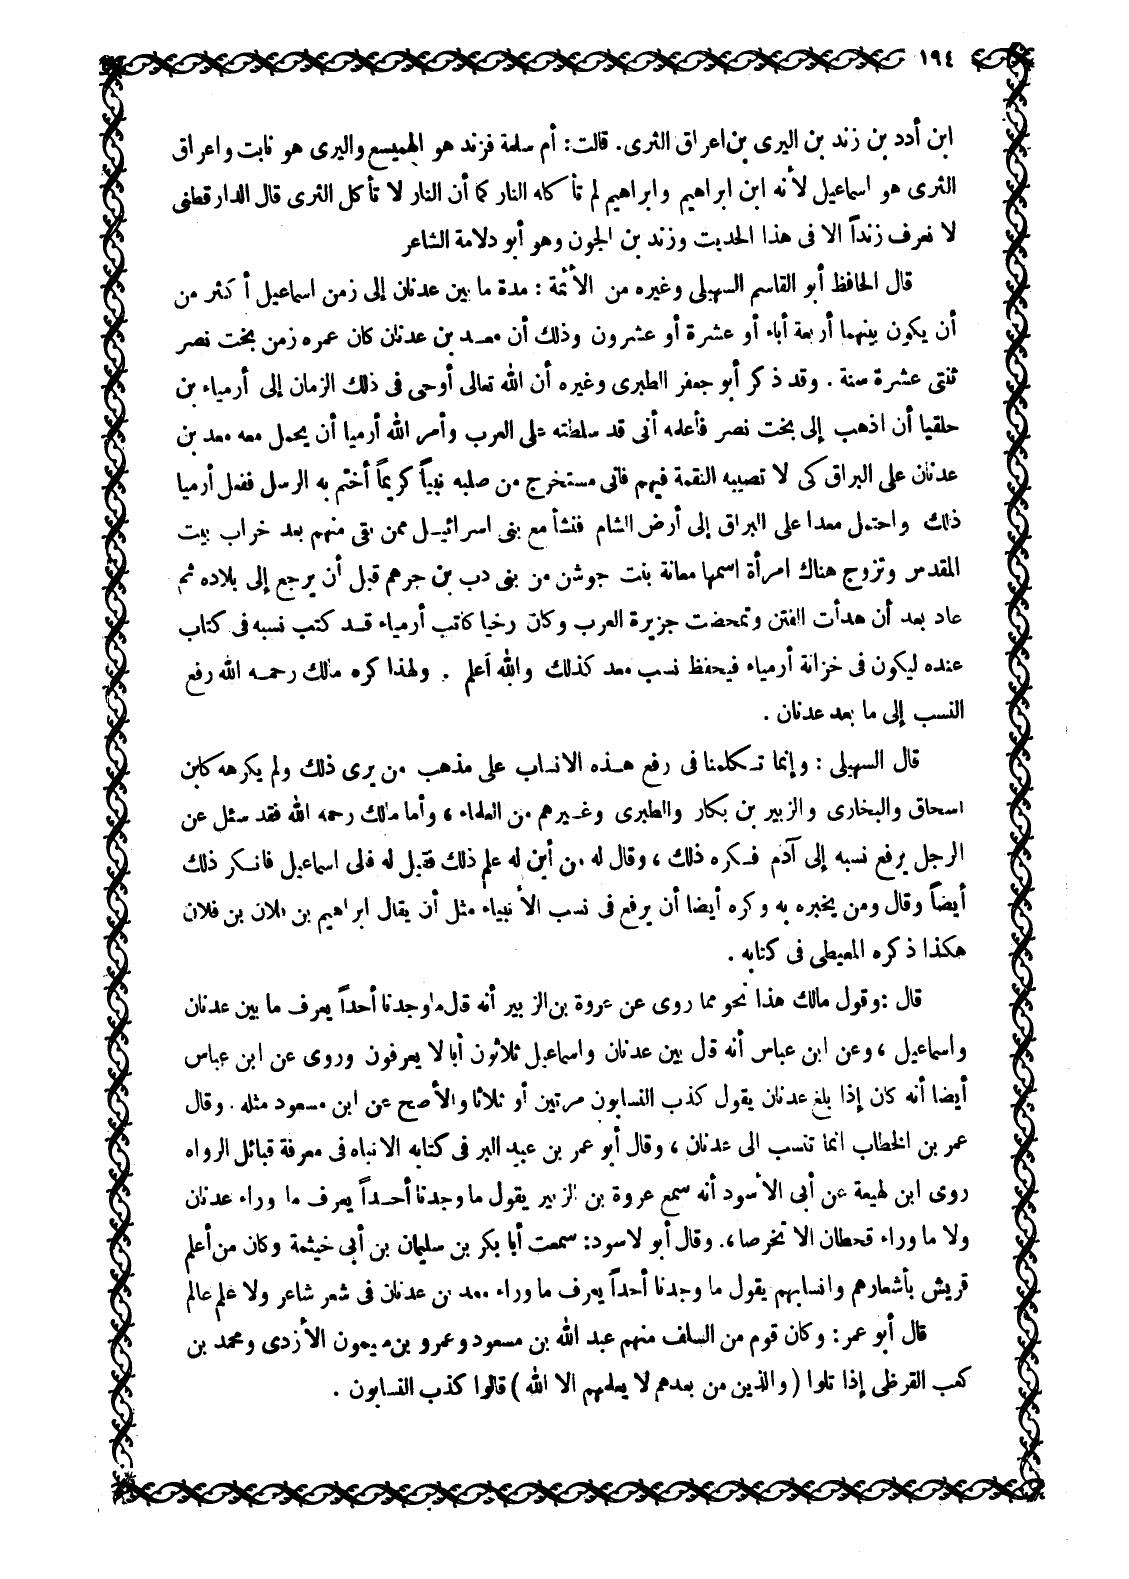 ١٩٤
ابن أدد بن زند بن اليرى بن اعراق الثرى. قالت: أم سلمة فزند هو الهميسع واليرى هو نابت واعراق
الثرى هو اسماعيل لأنه ابن ابراهيم وابراهيم لم تأكله النار كما أن النار لا تأكل الثرى قال الدارقطنى
لا نعرف زنداً الا فى هذا الحديث وزند بن الجون وهو أبو دلامة الشاعر
قال الحافظ أبو القاسم السهيلى وغيره من الأئمة : مدة ما بين عدنان إلى زمن اسماعيل أكثر من
أن يكون بينهما أربعة أباء أو عشرة أو عشرون وذلك أن معد بن عدنان كان عمره زمن بخت نصر
ثنتى عشرة سنة . وقد ذكر أبو جعفر الطبرى وغيره أن الله تعالى أوحى فى ذلك الزمان إلى أرمياء بن
حلقيا أن اذهب إلى بخت نصر فأعلمه أنى قد سلطته على العرب وأمر الله أرميا أن يحمل معه معد بن
عدنان على البراق كى لا تصيبه النقمة فيهم فانى مستخرج من صلبه نبياً كريماً أختم به الرسل ففعل أرميا
ذلك واحتمل معدا على البراق إلى أرض الشام فنشأ مع بنى اسرائيل ممن بقى منهم بعد خراب بيت
المقدس وتزوج هناك امرأة اسمها معانة بنت جوشن من بنى دب بن جرهم قبل أن يرجع إلى بلاده ثم
عاد بعد أن هدأت الفتن وتمحضت جزيرة العرب وكان رخيا كاتب أرمياء قد كتب نسبه فى كتاب
عنده ليكون فى خزانة أرمياء فيحفظ نسب معد كذلك والله أعلم . ولهذا كره مالك رحمه الله رفع
النسب إلى ما بعد عدنان .
قال السهيلى : وإنما تكلمنا فى رفع هذه الانساب على مذهب من يرى ذلك ولم يكرهه كابن
اسحاق والبخارى والزبير بن بكار والطبرى وغيرهم من العلماء ، وأما مالك رحمه الله فقد سئل عن
الرجل يرفع نسبه إلى آدم فكره ذلك ، وقال له من أين له علم ذلك فقيل له فالى اسماعيل فانكر ذلك
أيضاً وقال ومن يخبره به وكره أيضا أن يرفع فى نسب الأنبياء مثل أن يقال ابراهيم بن فلان بن فلان
هكذا ذكره المعيطى فى كتابه .
قال :وقول مالك هذا نحو مما روى عن عروة بن الزبير أنه قال ما وجدنا أحداً يعرف ما بين عدنان
واسماعيل ، وعن ابن عباس أنه قال بين عدنان واسماعيل ثلاثون أبا لا يعرفون وروى عن ابن عباس
أيضا أنه كان إذا بلغ عدنان يقول كذب النسابون مرتين أو ثلاثا والأصح عن ابن مسعود مثله . وقال
عمر بن الخطاب انما تنسب الى عدنان ، وقال أبو عمر بن عبد البر فى كتابه الانباه فى معرفة قبائل الرواه
روى ابن لهيعة عن أبى الأسود أنه سمع عروة بن الزبير يقول ما وجدنا أحداً يعرف ما وراء عدنان
ولا ما وراء قحطان الا تخرصاً، وقال أبو لاسود: سمعت أبا بكر بن سليمان بن أبى خيثمة وكان من أعلم
قريش بأشعارهم وانسابهم يقول ما وجدنا أحداً يعرف ما وراء معد بن عدنان فى شعر شاعر ولا علم عالم
قال أبو عمر: وكان قوم من السلف منهم عبد الله بن مسعود وعمرو بن ميمون الأزدى ومحمد بن
كعب القرظى إذا تلوا ( والذين من بعدهم لا يعلمهم الا الله ) قالوا كذب النسابون .